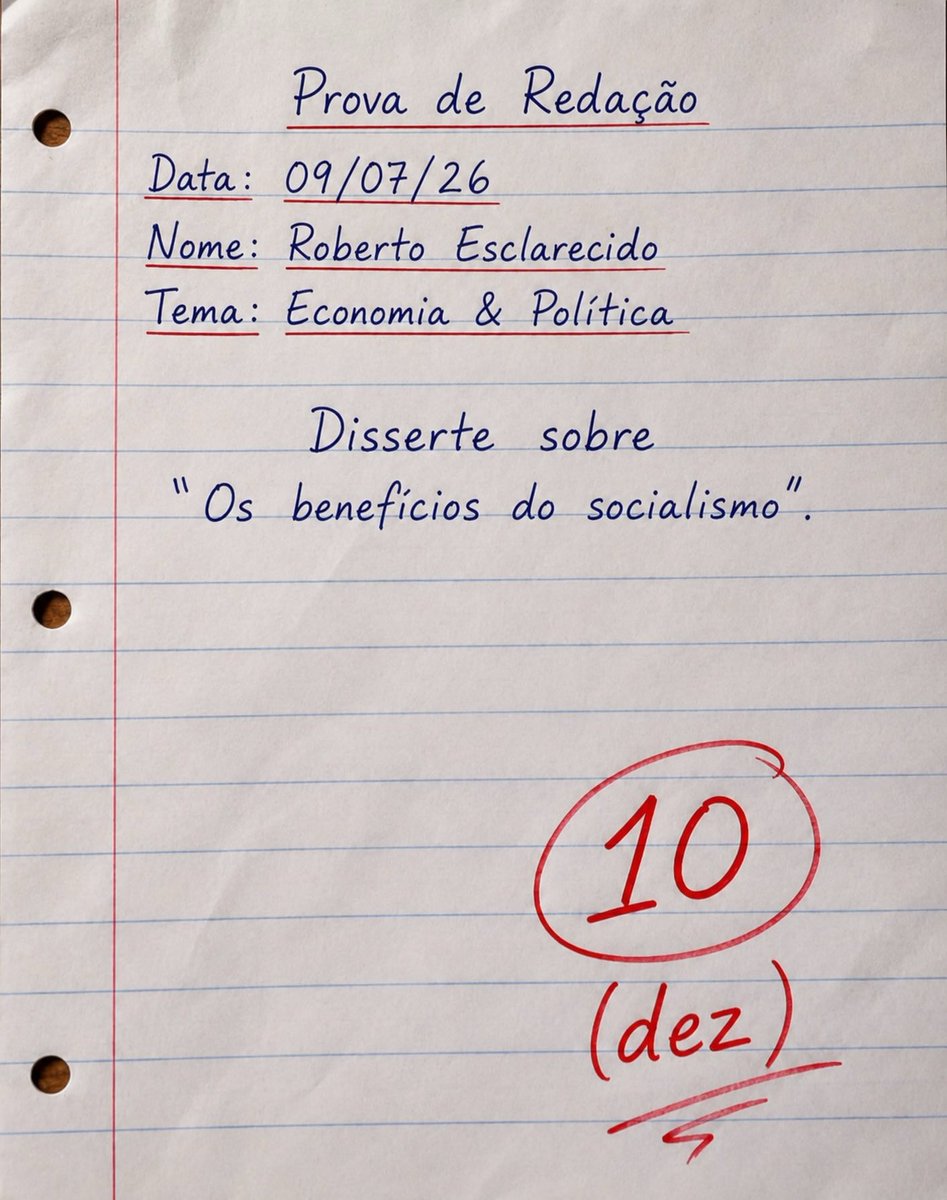 Prova de Redação
Data: 09/07/26
Nome: Roberto Esclarecido
Tema: Economia & Política
Disserte sobre
"Os benefícios do socialismo".
10
(dez)